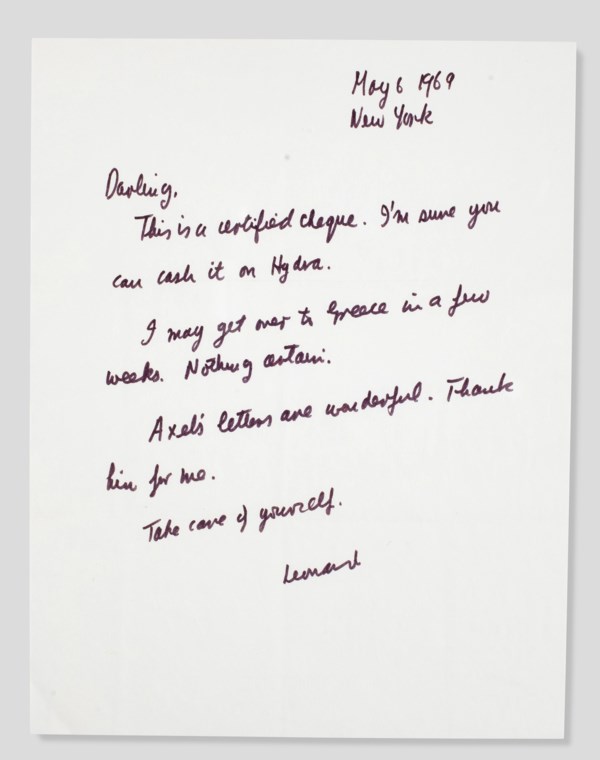 May 6 1969
New York
Darling,
This is a certified cheque. I'm sure you
can cash it on Hydra.
I may get over to Greece in a few
weeks. Nothing certain.
Axel's letters are wonderful. Thank
him for me.
Take care of yourself.
Leonard